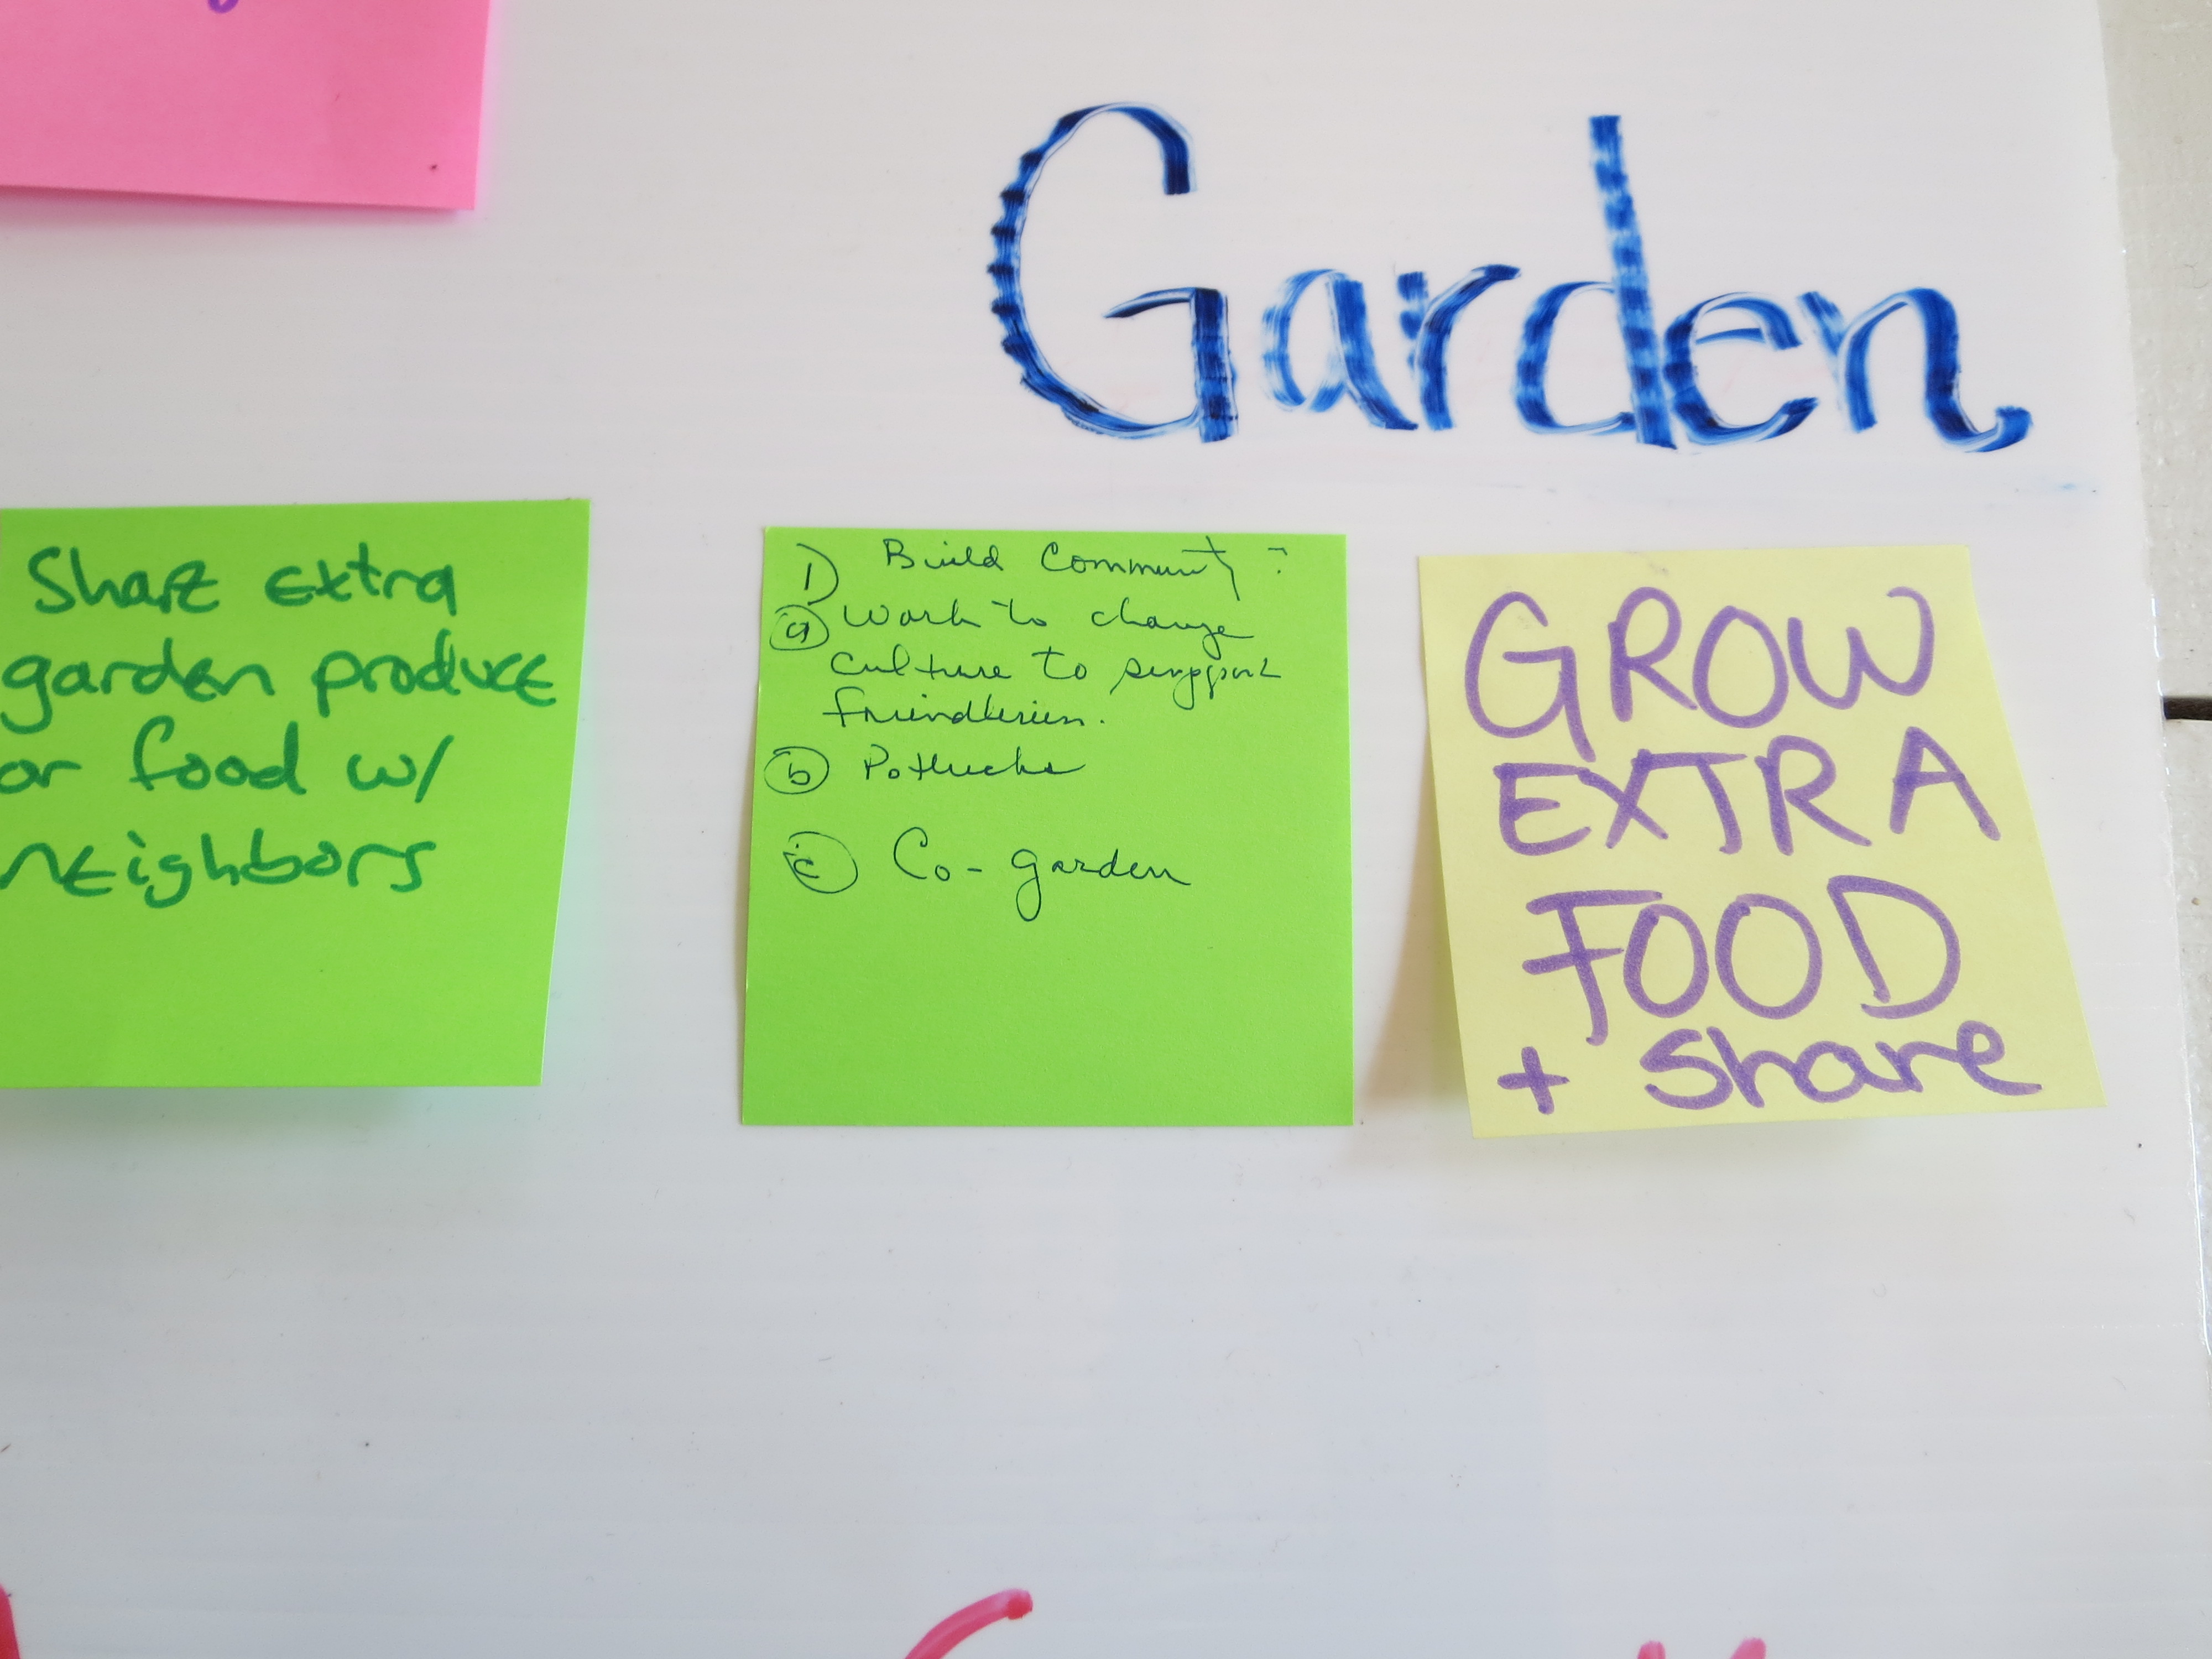 Garden
Share extra
garden produce
or food w/
neighbors
1) Build Community:
a Work to change
culture to support
b Potlucks
c Co-garden
GROW
EXTRA
FOOD
+ Share